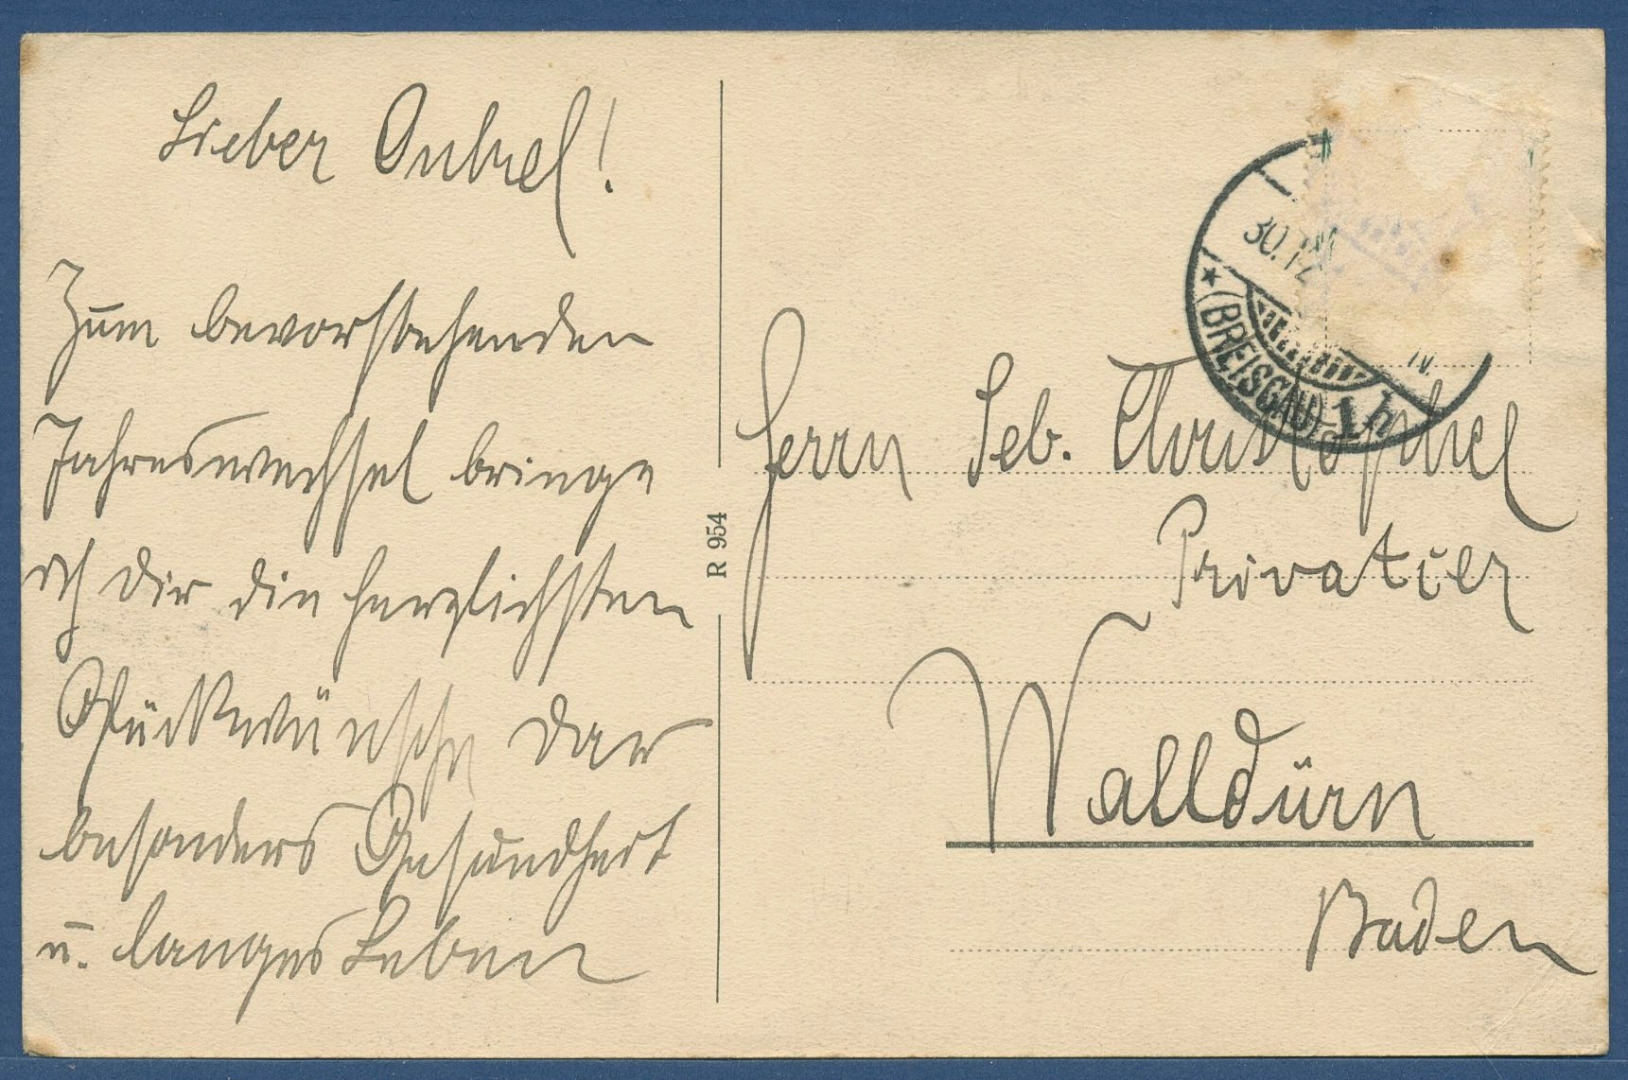 Lieber Onkel!
Zum bevorstehenden
Jahreswechsel bringe
ich dir die herzlichsten
Glückwünsche dar
besonders Gesundheit
u. langes Leben
R 954
30.12
(BREISGAU) 1 h
Herrn Seb. Christophel
Privatier
Walldürn
Baden